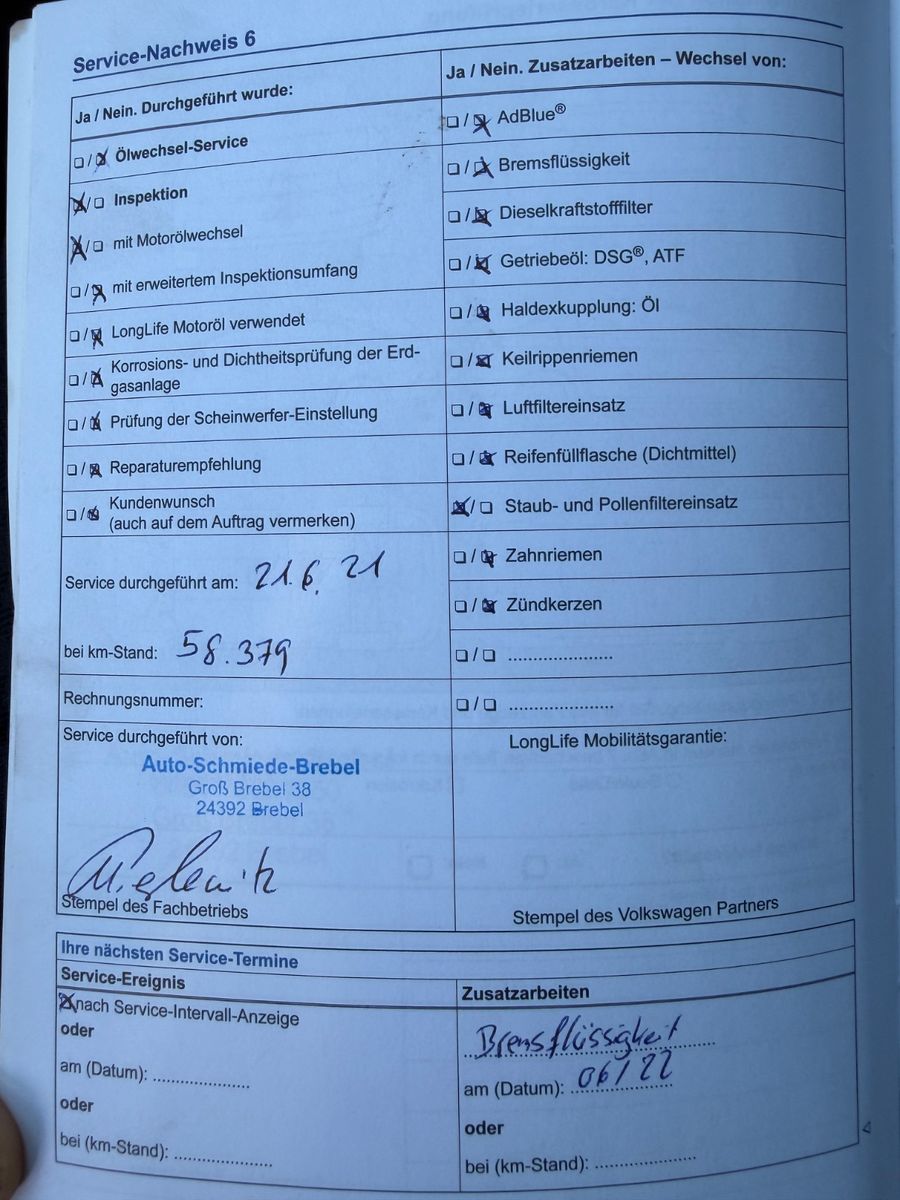 Service-Nachweis 6
Ja / Nein. Durchgeführt wurde:
☐/☒ Ölwechsel-Service
☒/☐ Inspektion
☒/☐ mit Motorölwechsel
☐/☒ mit erweitertem Inspektionsumfang
☐/☒ LongLife Motoröl verwendet
☐/☒ Korrosions- und Dichtheitsprüfung der Erd-
gasanlage
☐/☒ Prüfung der Scheinwerfer-Einstellung
☐/☒ Reparaturempfehlung
☐/☒ Kundenwunsch
(auch auf dem Auftrag vermerken)
Service durchgeführt am: 21.6.21
bei km-Stand: 58.379
Rechnungsnummer:
Service durchgeführt von:
Auto-Schmiede-Brebel
Groß Brebel 38
24392 Brebel
Stempel des Fachbetriebs
Ja / Nein. Zusatzarbeiten – Wechsel von:
☐/☒ AdBlue®
☐/☒ Bremsflüssigkeit
☐/☒ Dieselkraftstofffilter
☐/☒ Getriebeöl: DSG®, ATF
☐/☒ Haldexkupplung: Öl
☐/☒ Keilrippenriemen
☐/☒ Luftfiltereinsatz
☐/☒ Reifenfüllflasche (Dichtmittel)
☒/☐ Staub- und Pollenfiltereinsatz
☐/☒ Zahnriemen
☐/☒ Zündkerzen
☐/☐ .....................
☐/☐ .....................
LongLife Mobilitätsgarantie:
Stempel des Volkswagen Partners
Ihre nächsten Service-Termine
Service-Ereignis
☒ nach Service-Intervall-Anzeige
oder
am (Datum): ...................
oder
bei (km-Stand): ...................
Zusatzarbeiten
Bremsflüssigkeit
am (Datum): 06/22
oder
bei (km-Stand): ...................